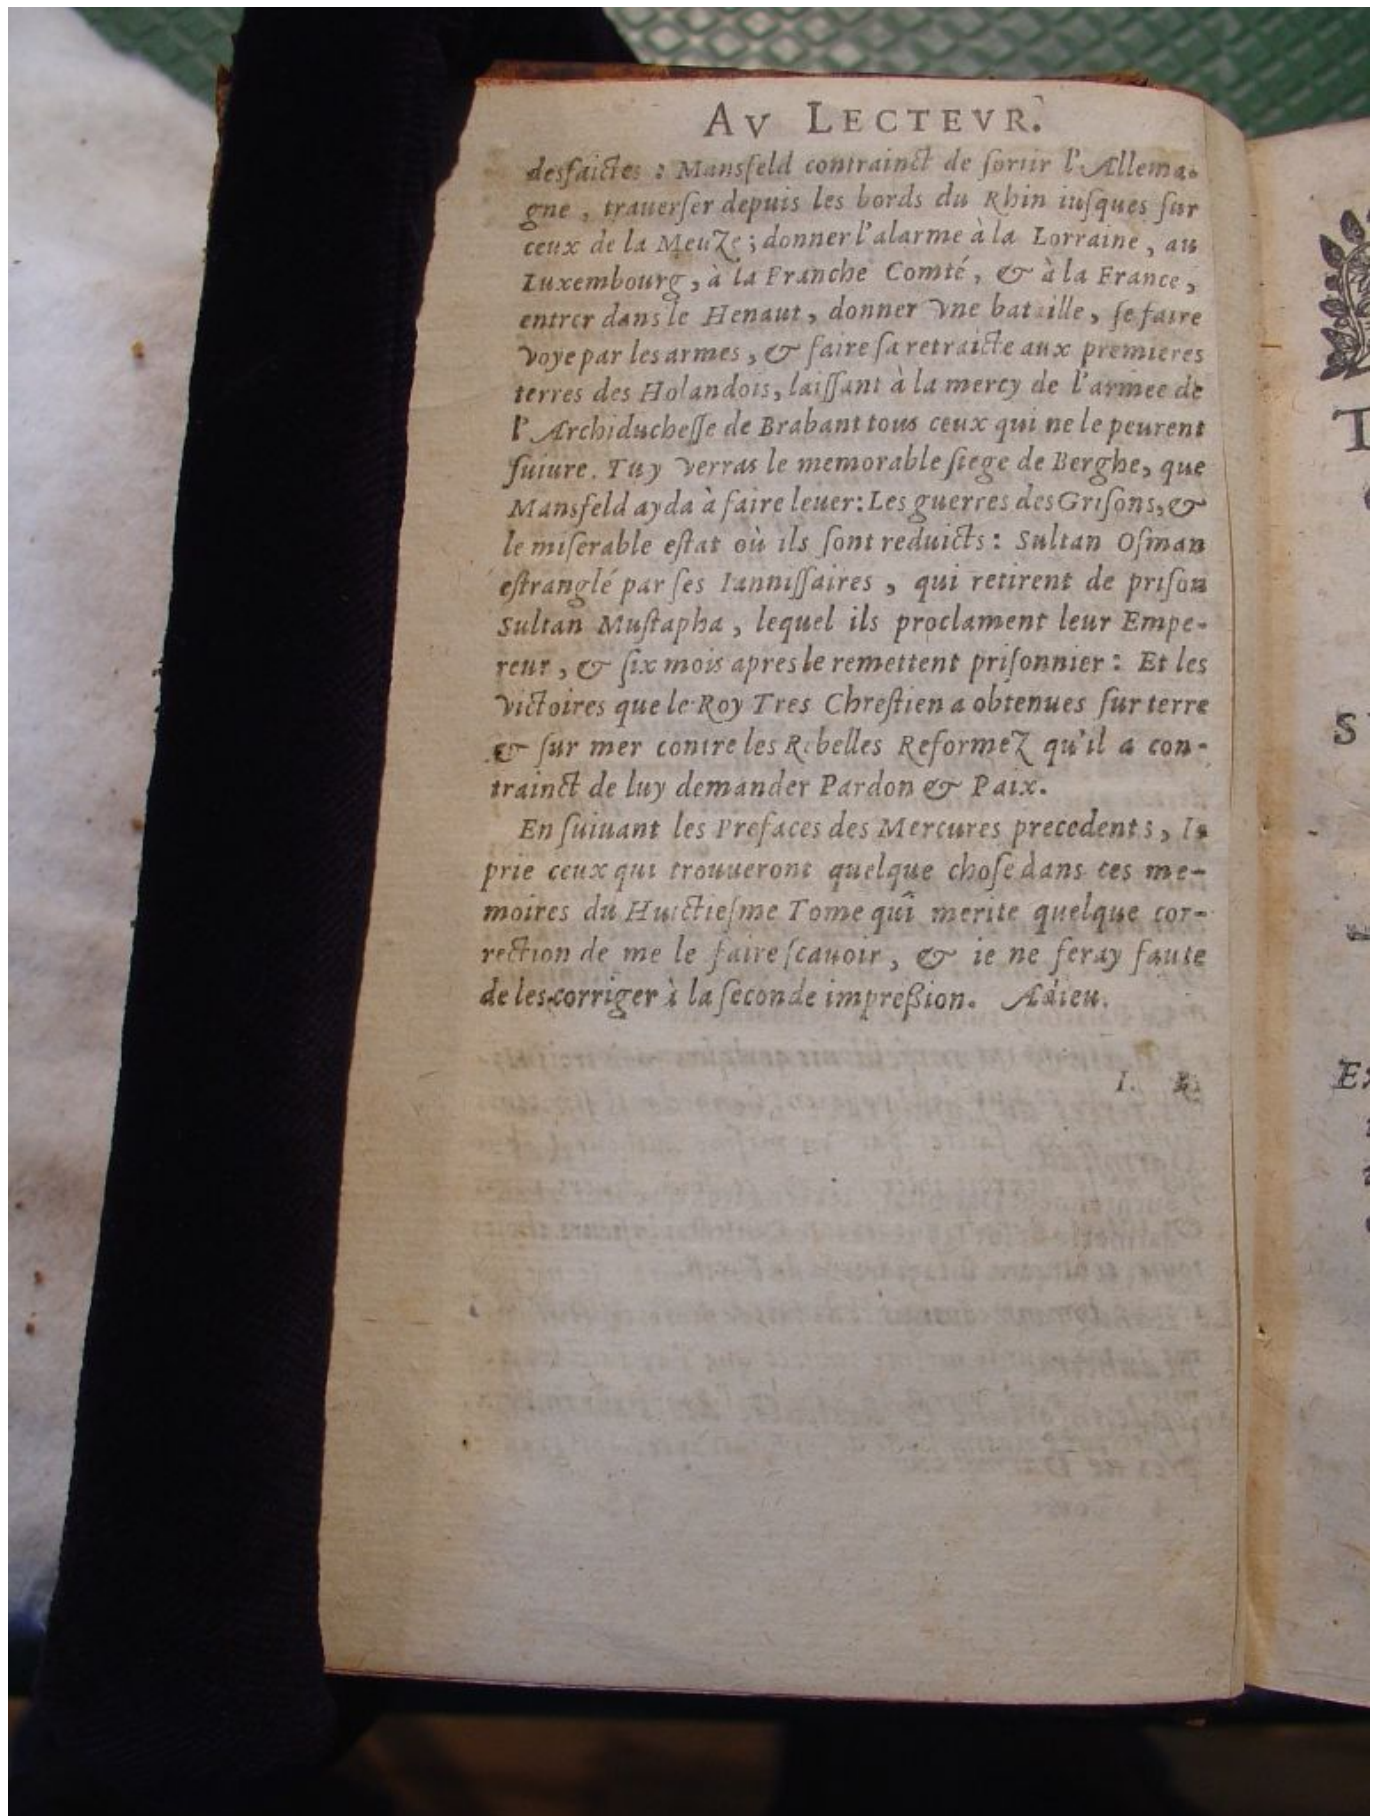 AV LECTEVR.
desfaictes : Mansfeld contrainct de sortir l'Allema-
gne, trauerser depuis les bords du Rhin iusques sur
ceux de la Meuze ; donner l'alarme à la Lorraine, au
Luxembourg, à la Franche Comté, & à la France,
entrer dans le Henaut, donner vne bataille, se faire
voye par les armes, & faire sa retraicte aux premieres
terres des Holandois, laissant à la mercy de l'armee de
l'Archiduchesse de Brabant tous ceux qui ne le peurent
suiure. Tu y verras le memorable siege de Berghe, que
Mansfeld ayda à faire leuer: Les guerres des Grisons, &
le miserable estat où ils sont reduicts : Sultan Osman
estranglé par ses Iannissaires, qui retirent de prison
Sultan Mustapha, lequel ils proclament leur Empe-
reur, & six mois apres le remettent prisonnier : Et les
victoires que le Roy Tres Chrestien a obtenues sur terre
& sur mer contre les Rebelles Reformez qu'il a con-
trainct de luy demander Pardon & Paix.
En suiuant les Prefaces des Mercures precedents, Ie
prie ceux qui trouueront quelque chose dans ces me-
moires du Huictiesme Tome qui merite quelque cor-
rection de me le faire scauoir, & ie ne feray faute
de les corriger à la seconde impression. Adieu.
I. R.